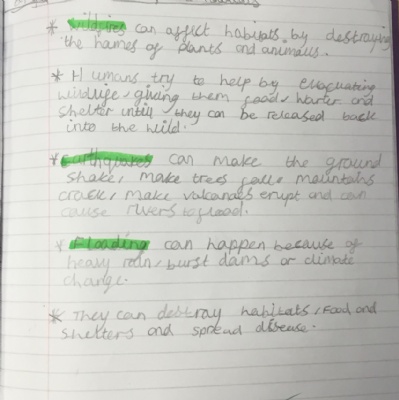 * Wildfires can affect habitats by destroying
the homes of plants and animals.
* Humans try to help by evacuating
wildlife, giving them food, water and
shelter untill they can be released back
into the wild.
* Earthquakes can make the ground
shake, make trees fall, mountains
crack, make volcanoes erupt and can
cause rivers to flood.
* Flooding can happen because of
heavy rain, burst dams or climate
change.
* They can destroy habitats, food and
shelters and spread disease.